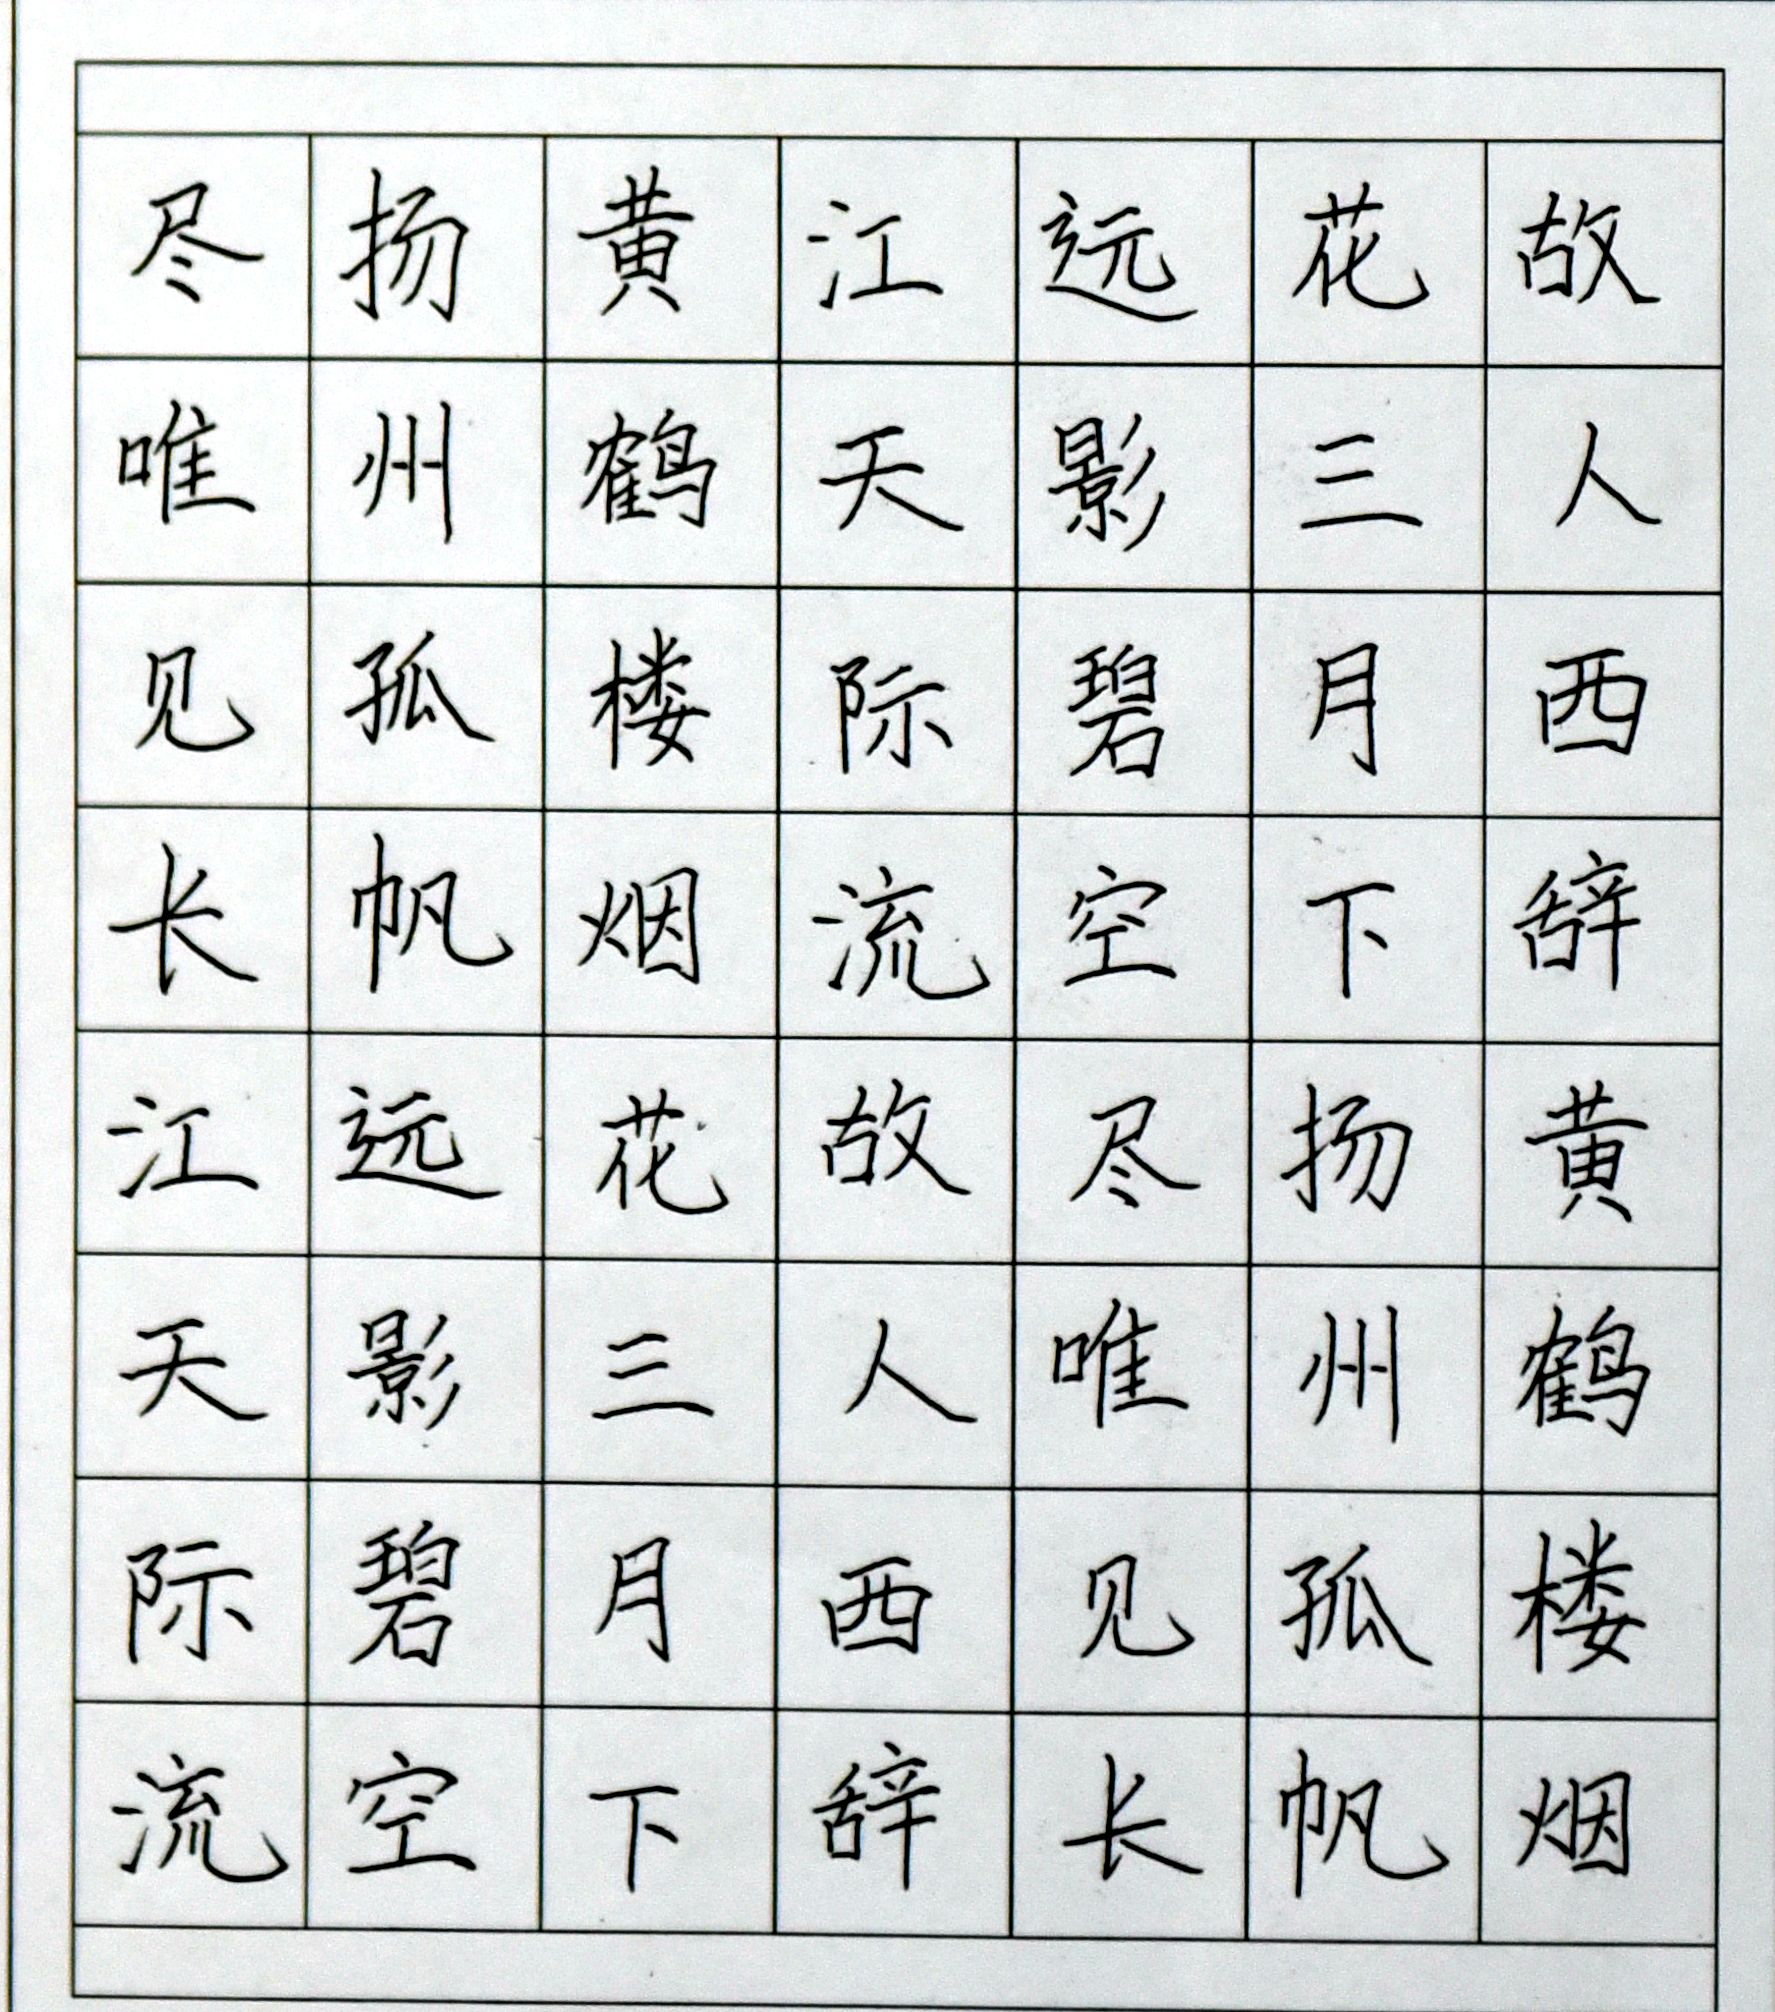 故人西辞黄鹤楼烟
花三月下扬州孤帆
远影碧空尽唯见长
江天际流故人西辞
黄鹤楼烟花三月下
扬州孤帆远影碧空
尽唯见长江天际流